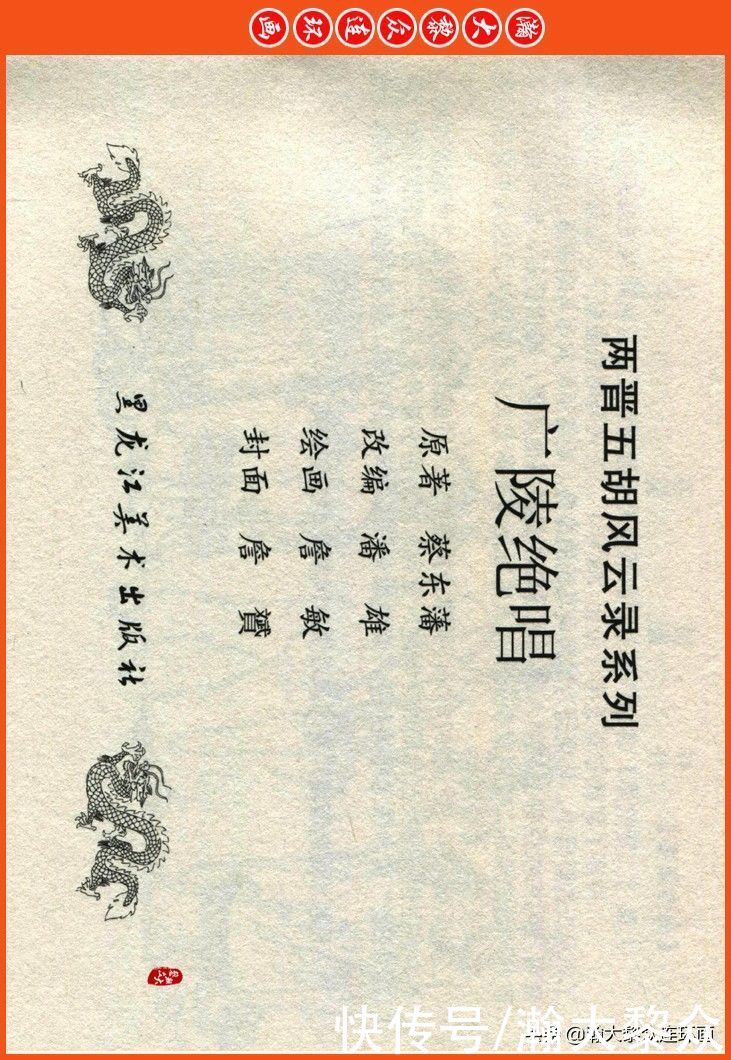 瀚大黎众连环画
两晋五胡风云录系列
广陵绝唱
原著 蔡东藩
改编 潘雄
绘画 詹敏
封面 詹贇
黑龙江美术出版社
快传号/瀚大黎众
@瀚大黎众连环画